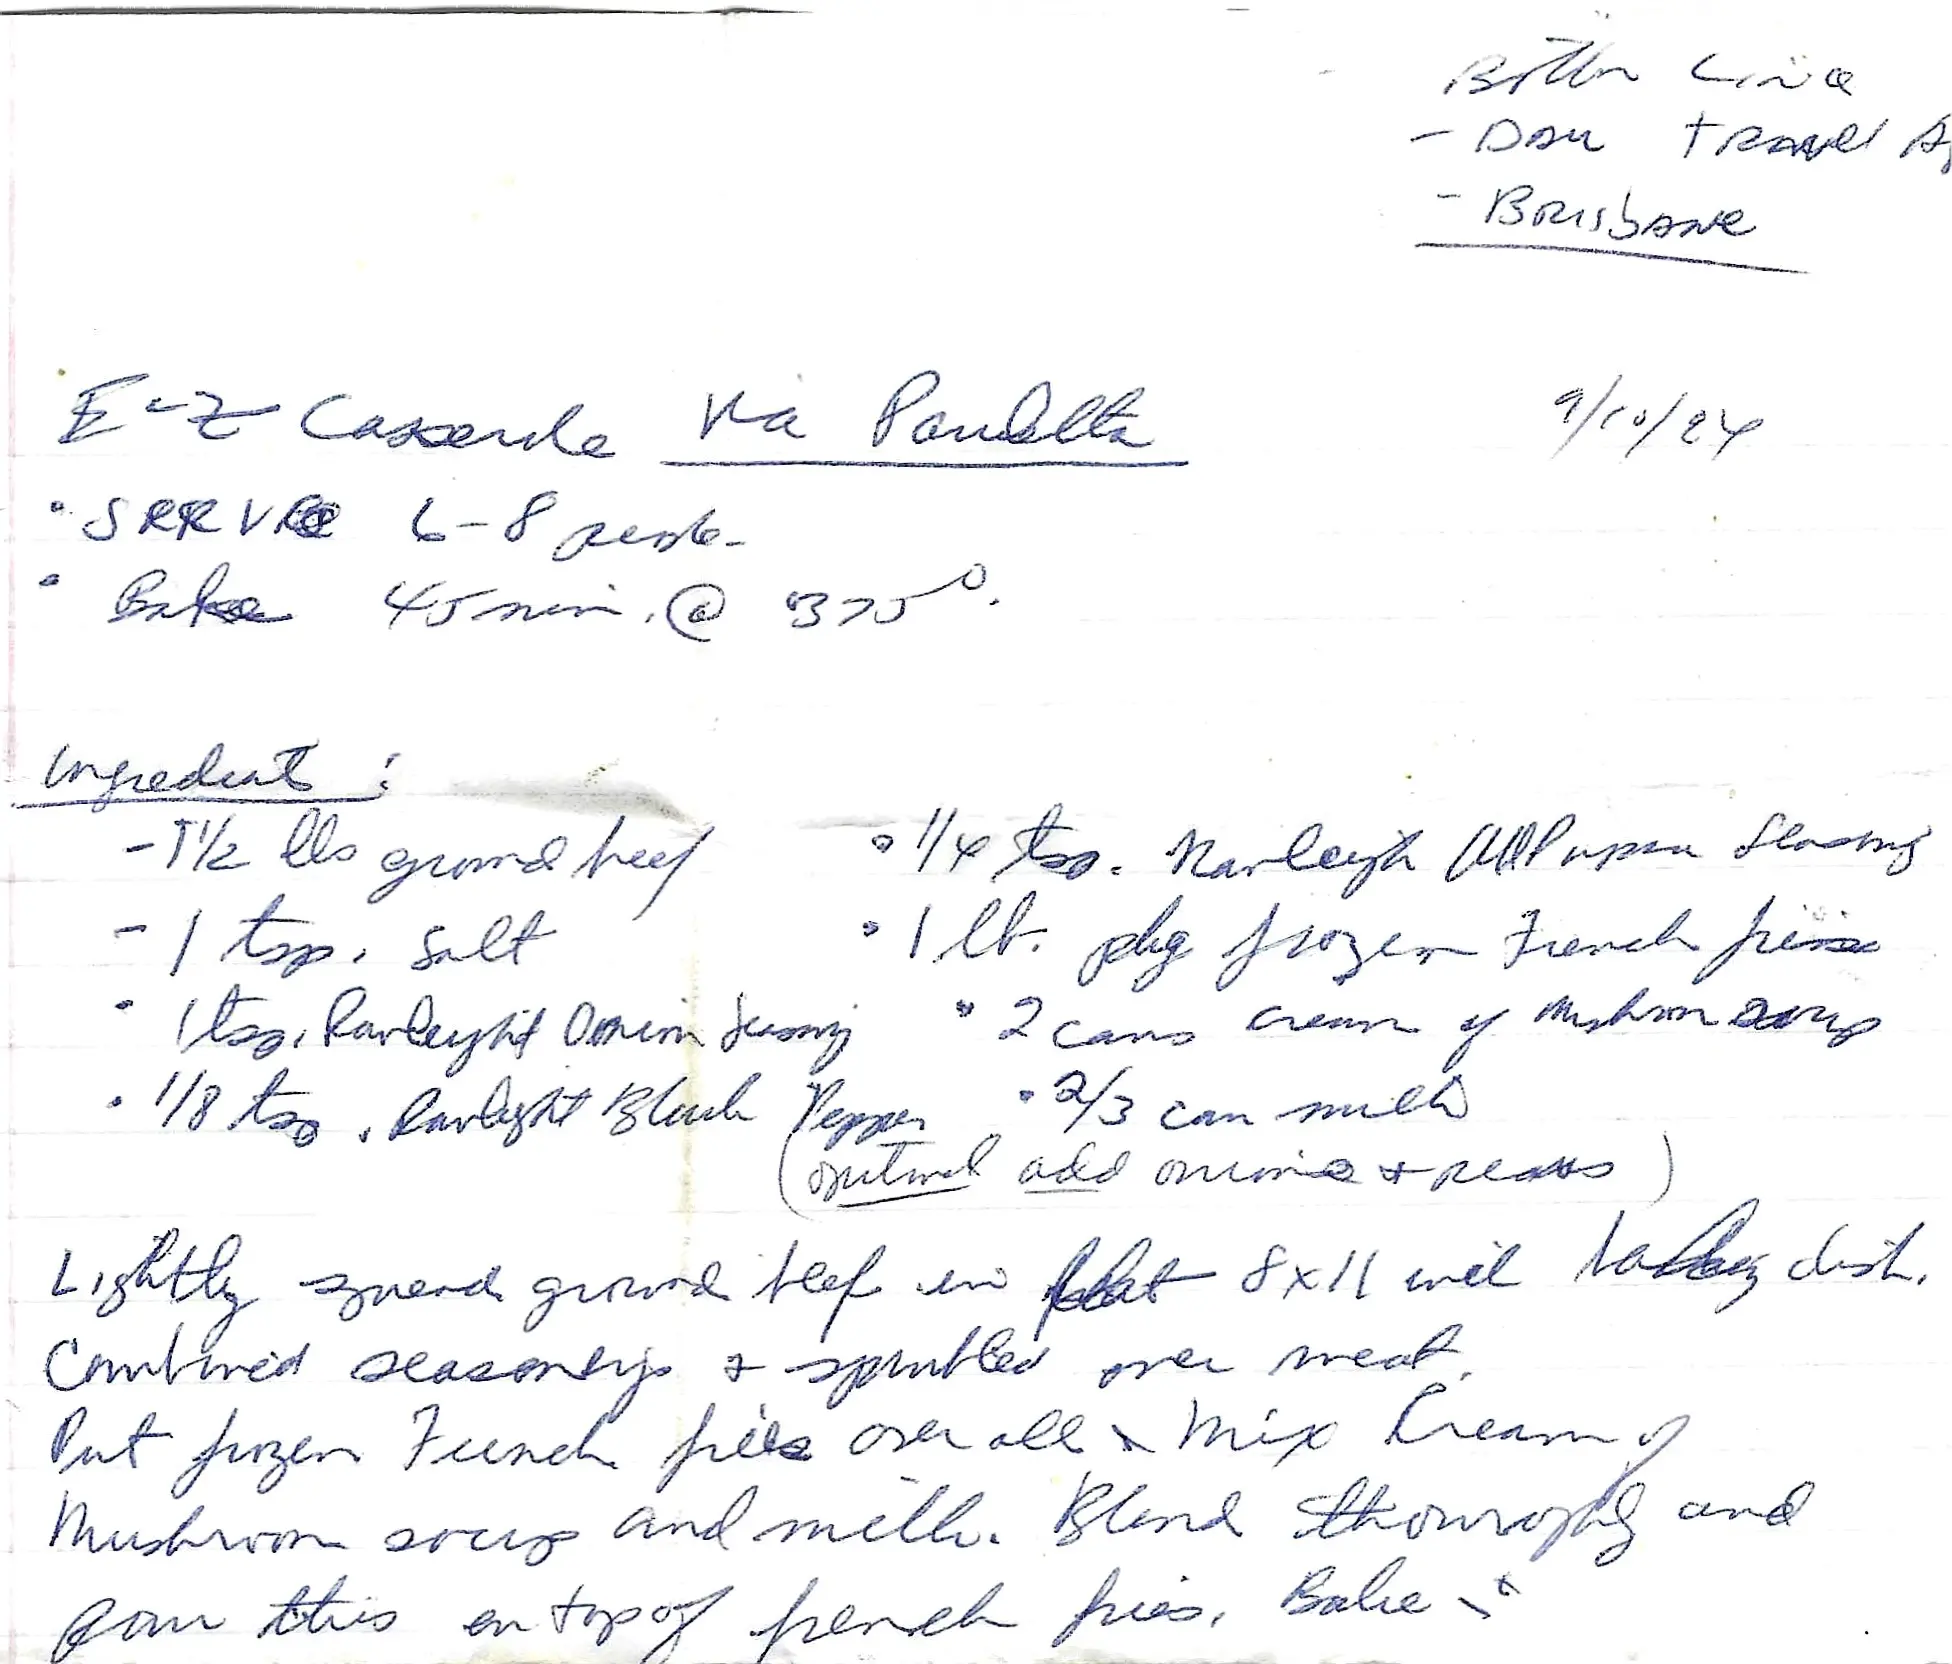 Bottom Line
- Dan Travel A
- Brisbane
E-Z Casserole Via Pauletta 9/10/24
• Serve 6-8 people
• Bake 45 min. @ 375°.
Ingredients :
- 1 1/2 lbs ground beef • 1/4 tsp. Rawleigh All Purpose Seasoning
- 1 tsp. Salt • 1 lb. pkg frozen French fries
• 1 tsp. Rawleight Onion Seasoning • 2 cans cream of Mushroom soup
• 1/8 tsp. Rawleight Black Pepper • 2/3 can milk
(optional add onions + peas)
Lightly spread ground beef in 8x11 baking dish.
Combined seasonings + sprinkled over meat.
Put frozen French fries over all. Mix Cream of
Mushroom soup and milk. Blend thouroughly and
pour this on top of french fries. Bake